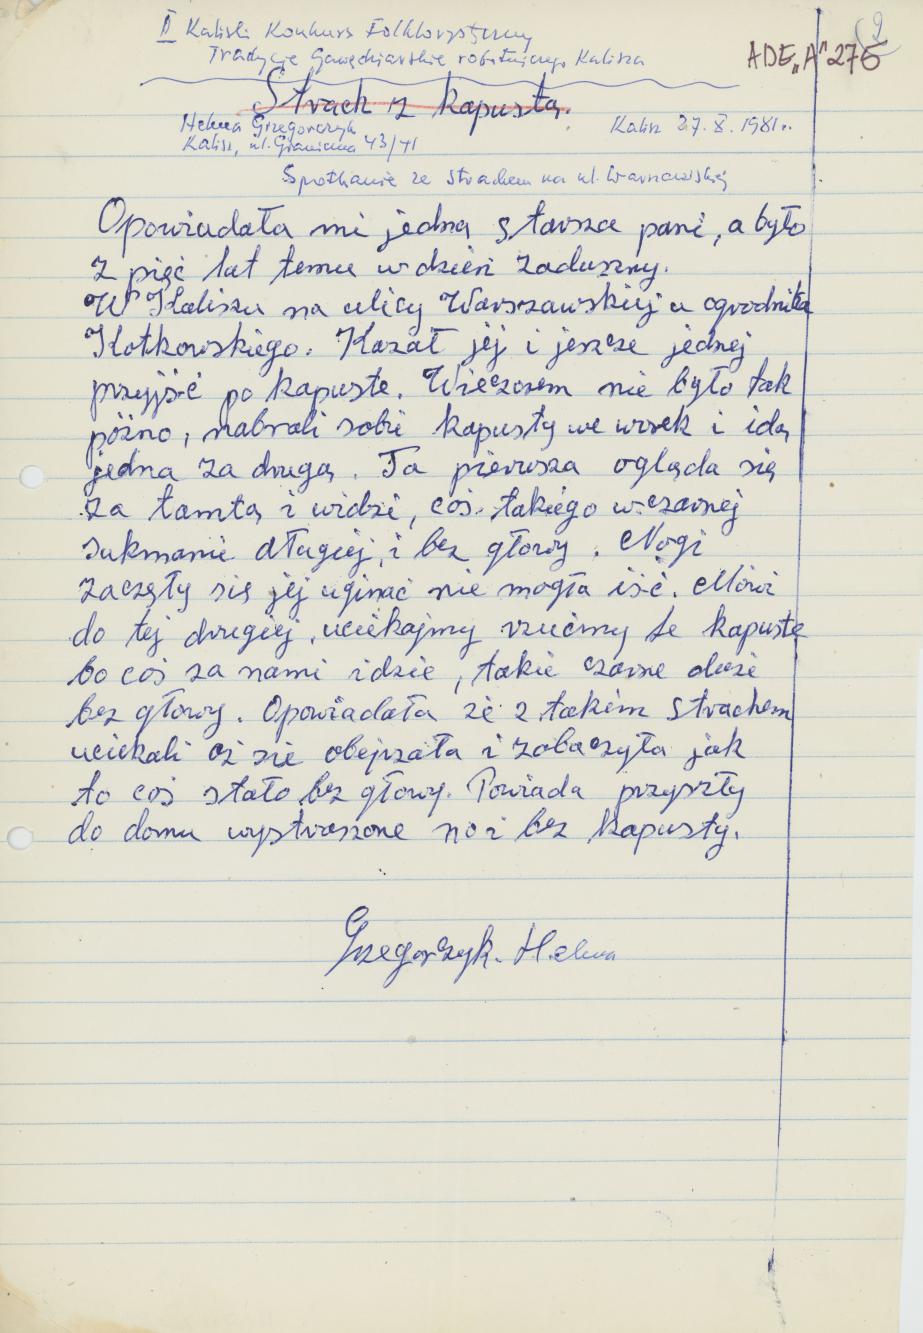 2
ADE "A" 276
II Kaliski Konkurs Folklorystyczny
Tradycje Gawędziarskie robotniczego Kalisza
Strach z kapustą.
Helena Grzegorczyk
Kalisz, ul. Graniczna 43/41
Kalisz 27.X.1981r.
Spotkanie ze strachem na ul. Warszawskiej
Opowiadała mi jedną starsza pani, a było
z pięć lat temu w dzień zaduszny.
W Kaliszu na ulicy Warszawskiej u ogrodnika
Kotkowskiego. Kazał jej i jeszcze jednej
przyjść po kapuste. Wieczorem nie było tak
późno, nabrali sobie kapusty we worek i idą
jedna za drugą. Ta pierwsza ogląda się
za tamtą i widzi, coś takiego w czarnej
sukmanie długiej i bez głowy. Nogi
zaczęły się jej uginać nie mogła iść. Mówi
do tej drugiej, uciekajmy rzućmy te kapuste
bo coś za nami idzie, takie czarne duże
bez głowy. Opowiadała że z takim strachem
uciekali aż sie obejrzała i zobaczyła jak
to coś stało bez głowy. Powiada przyszły
do domu wystraszone no i bez kapusty.
Grzegorczyk. Helena